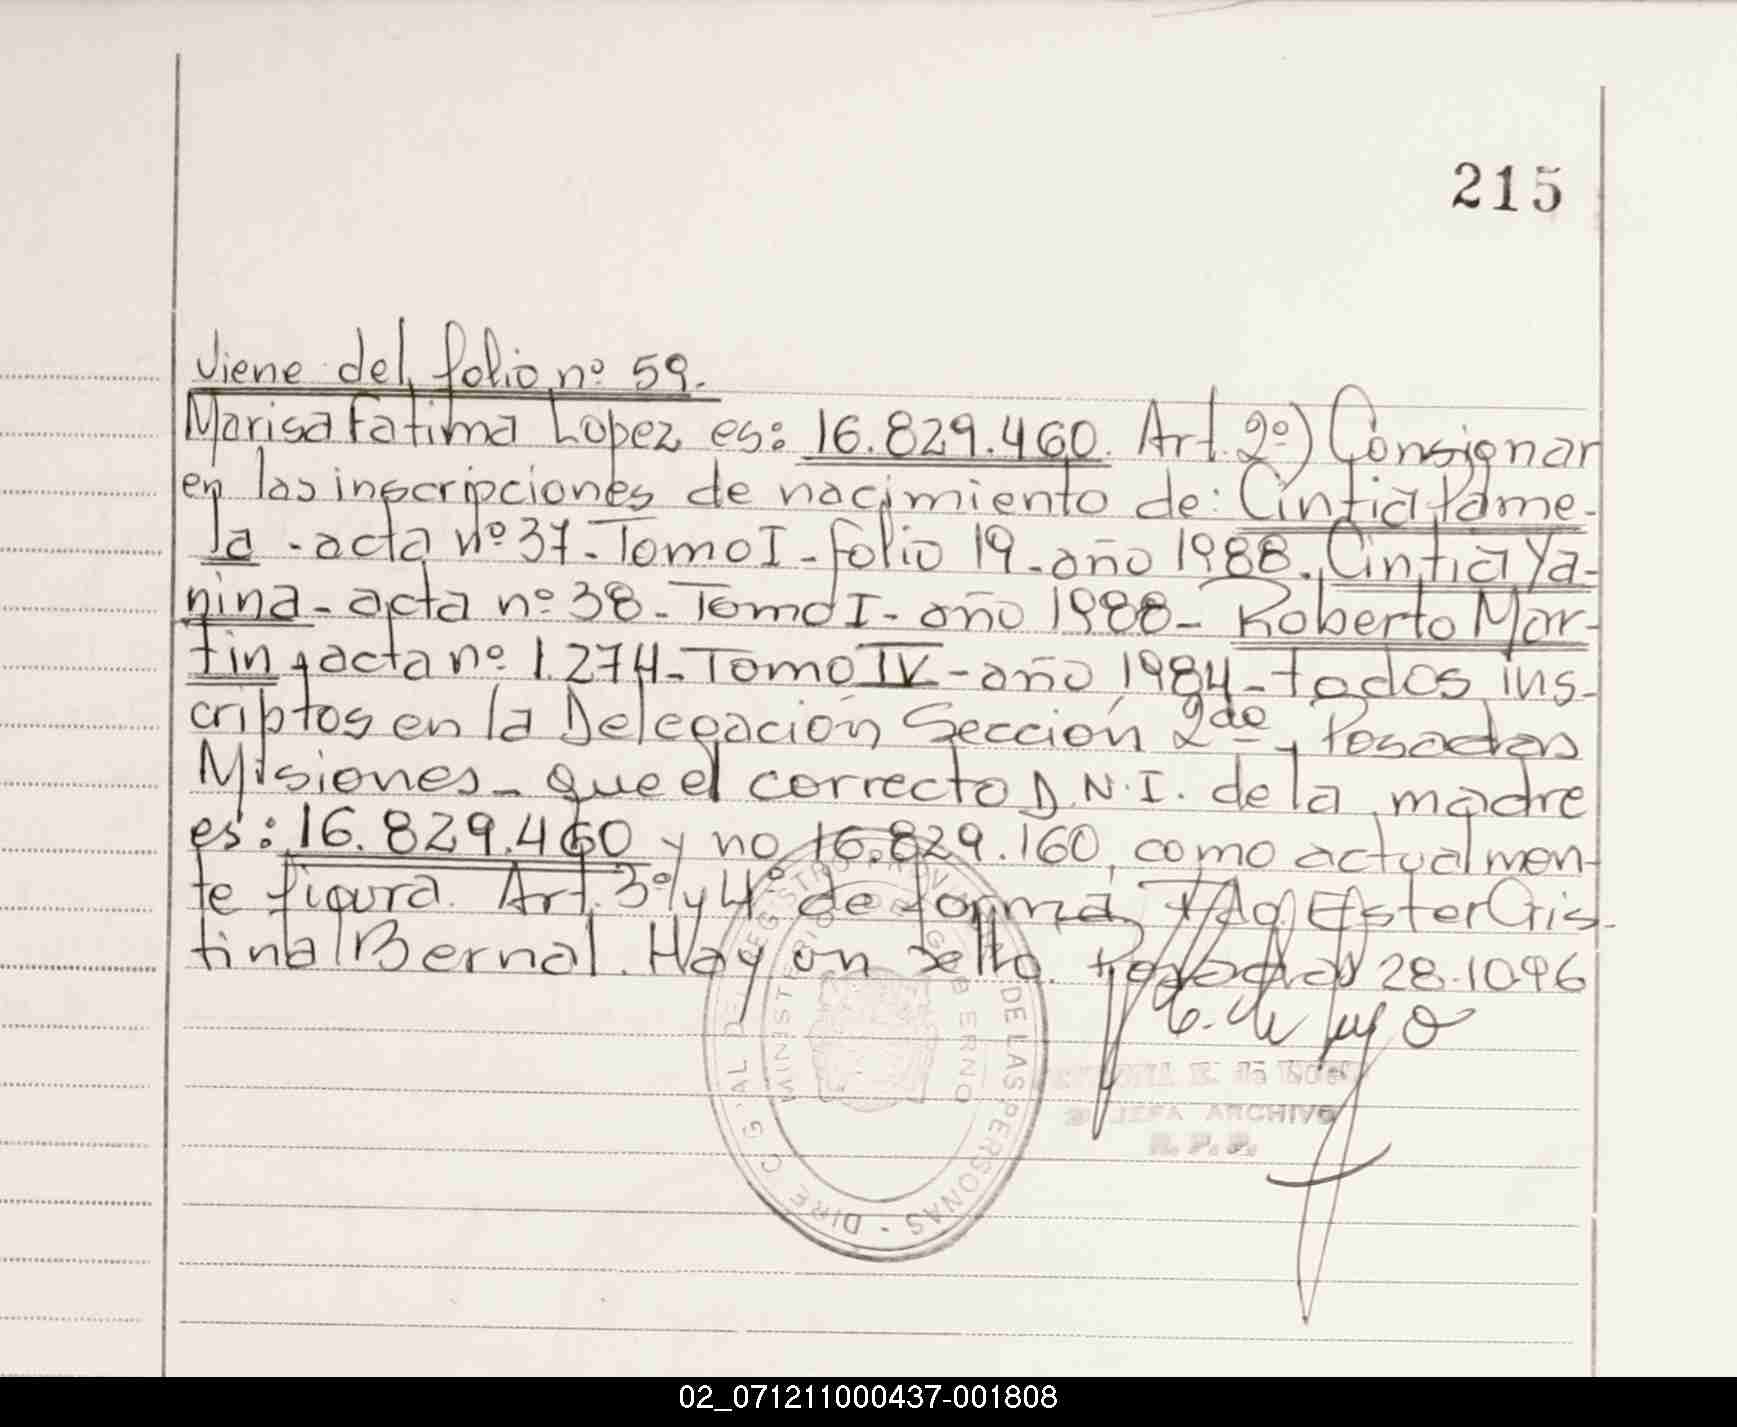 215
Viene del folio nº 59.
Marisa Fatima Lopez es: 16.829.460. Art. 2º) Consignar
en las inscripciones de nacimiento de: Cintia Pame-
la - acta nº 37 - Tomo I - folio 19 - año 1988. Cintia Ya-
nina - acta nº 38 - Tomo I - año 1988 - Roberto Mar-
tin, acta nº 1.274 - Tomo IV - año 1984 - todos ins-
criptos en la Delegación Sección 2da, Posadas
Misiones - que el correcto D.N.I. de la madre
es: 16.829.460 y no 16.829.160, como actualmen-
te figura. Art. 3º y 4º de forma Ester Cris-
tina Bernal. Hay un sello. Posadas 28.10.96
DIREC. GRAL DEL REGISTRO PROV. DE LAS PERSONAS
MINISTERIO DE GOBIERNO
JEFA ARCHIVO
R. P. P.
02_071211000437-001808